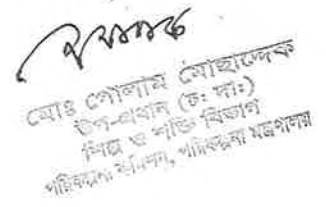 মোঃ গোলাম মোছাদ্দেক
উপ-প্রধান (চঃ দাঃ)
শিল্প ও শক্তি বিভাগ
পরিকল্পনা কমিশন, পরিকল্পনা মন্ত্রণালয়